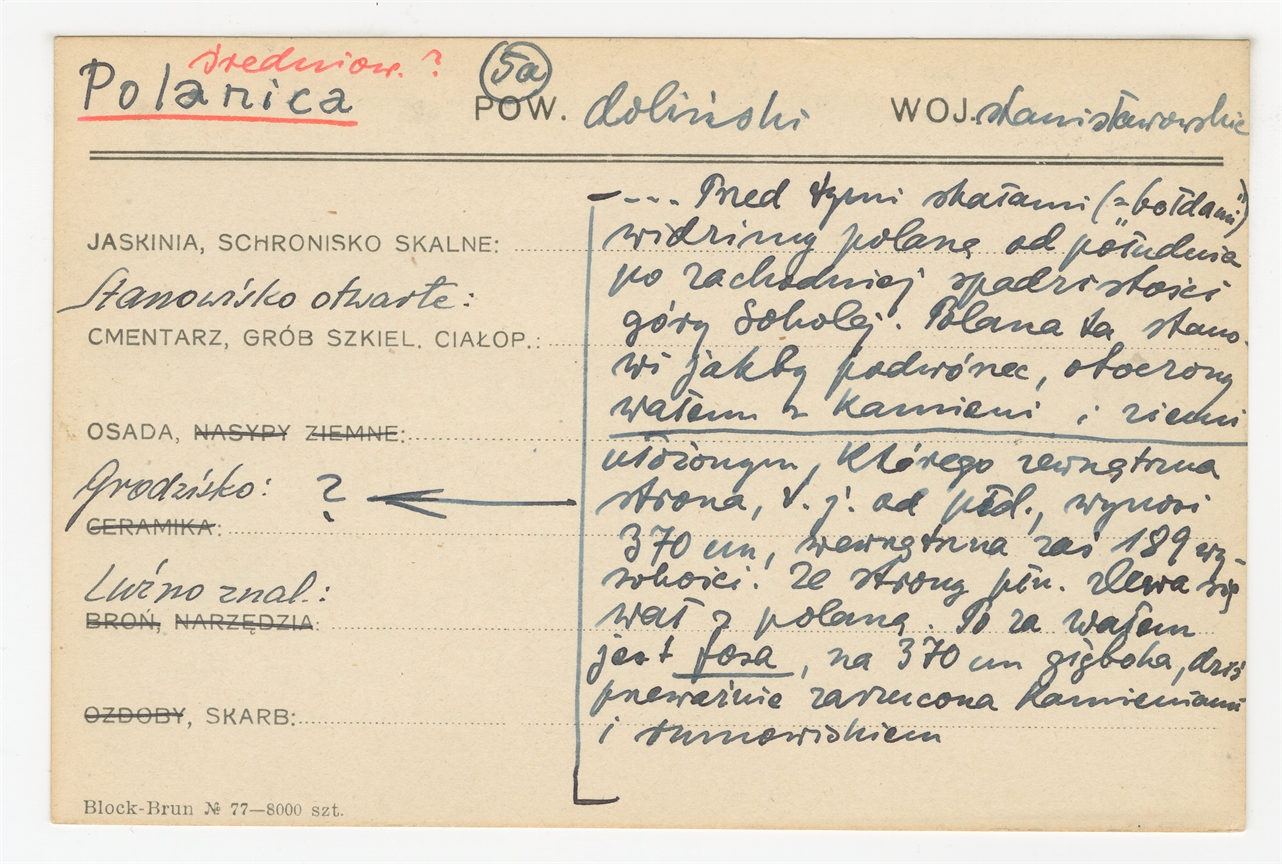 średniow. ?
Polanica
5a
POW. doliński WOJ. stanisławowskie
JASKINIA, SCHRONISKO SKALNE:
Stanowisko otwarte:
CMENTARZ, GRÓB SZKIEL. CIAŁOP.:
OSADA, NASYPY ZIEMNE:
Grodzisko: ?
CERAMIKA:
Luźno znal.:
BROŃ, NARZĘDZIA:
OZDOBY, SKARB:
--- Przed tymi skałami (="bołdami")
widzimy polanę od południa
po zachodniej spadzistości
góry Sokolej. Polana ta stano-
wi jakby podwórzec, otoczony
wałem z kamieni i ziemi
ułożonym, którego zewnętrzna
strona, t.j. od płd., wynosi
370 cm, wewnętrzna zaś 189 wy-
sokości. Ze strony płn. zlewa się
wał z polaną. Po za wałem
jest fosa, na 370 cm głęboka, dziś
przeważnie zarzucona kamieniami
i rumowiskiem
Block-Brun № 77—8000 szt.